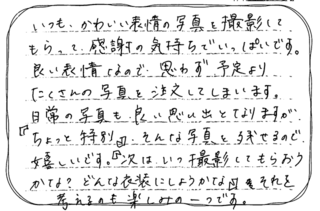 いつも、かわいい表情の写真を撮影して
もらって、感謝の気持ちでいっぱいです。
良い表情なので、思わず予定より
たくさんの写真を注文してしまいます。
日常の写真も良い思い出となりますが、
『ちょっと特別』そんな写真を残せるので、
嬉しいです。『次はいつ撮影してもらおう
かな?どんな衣装にしようかな』とそれを
考えるのも楽しみの一つです。